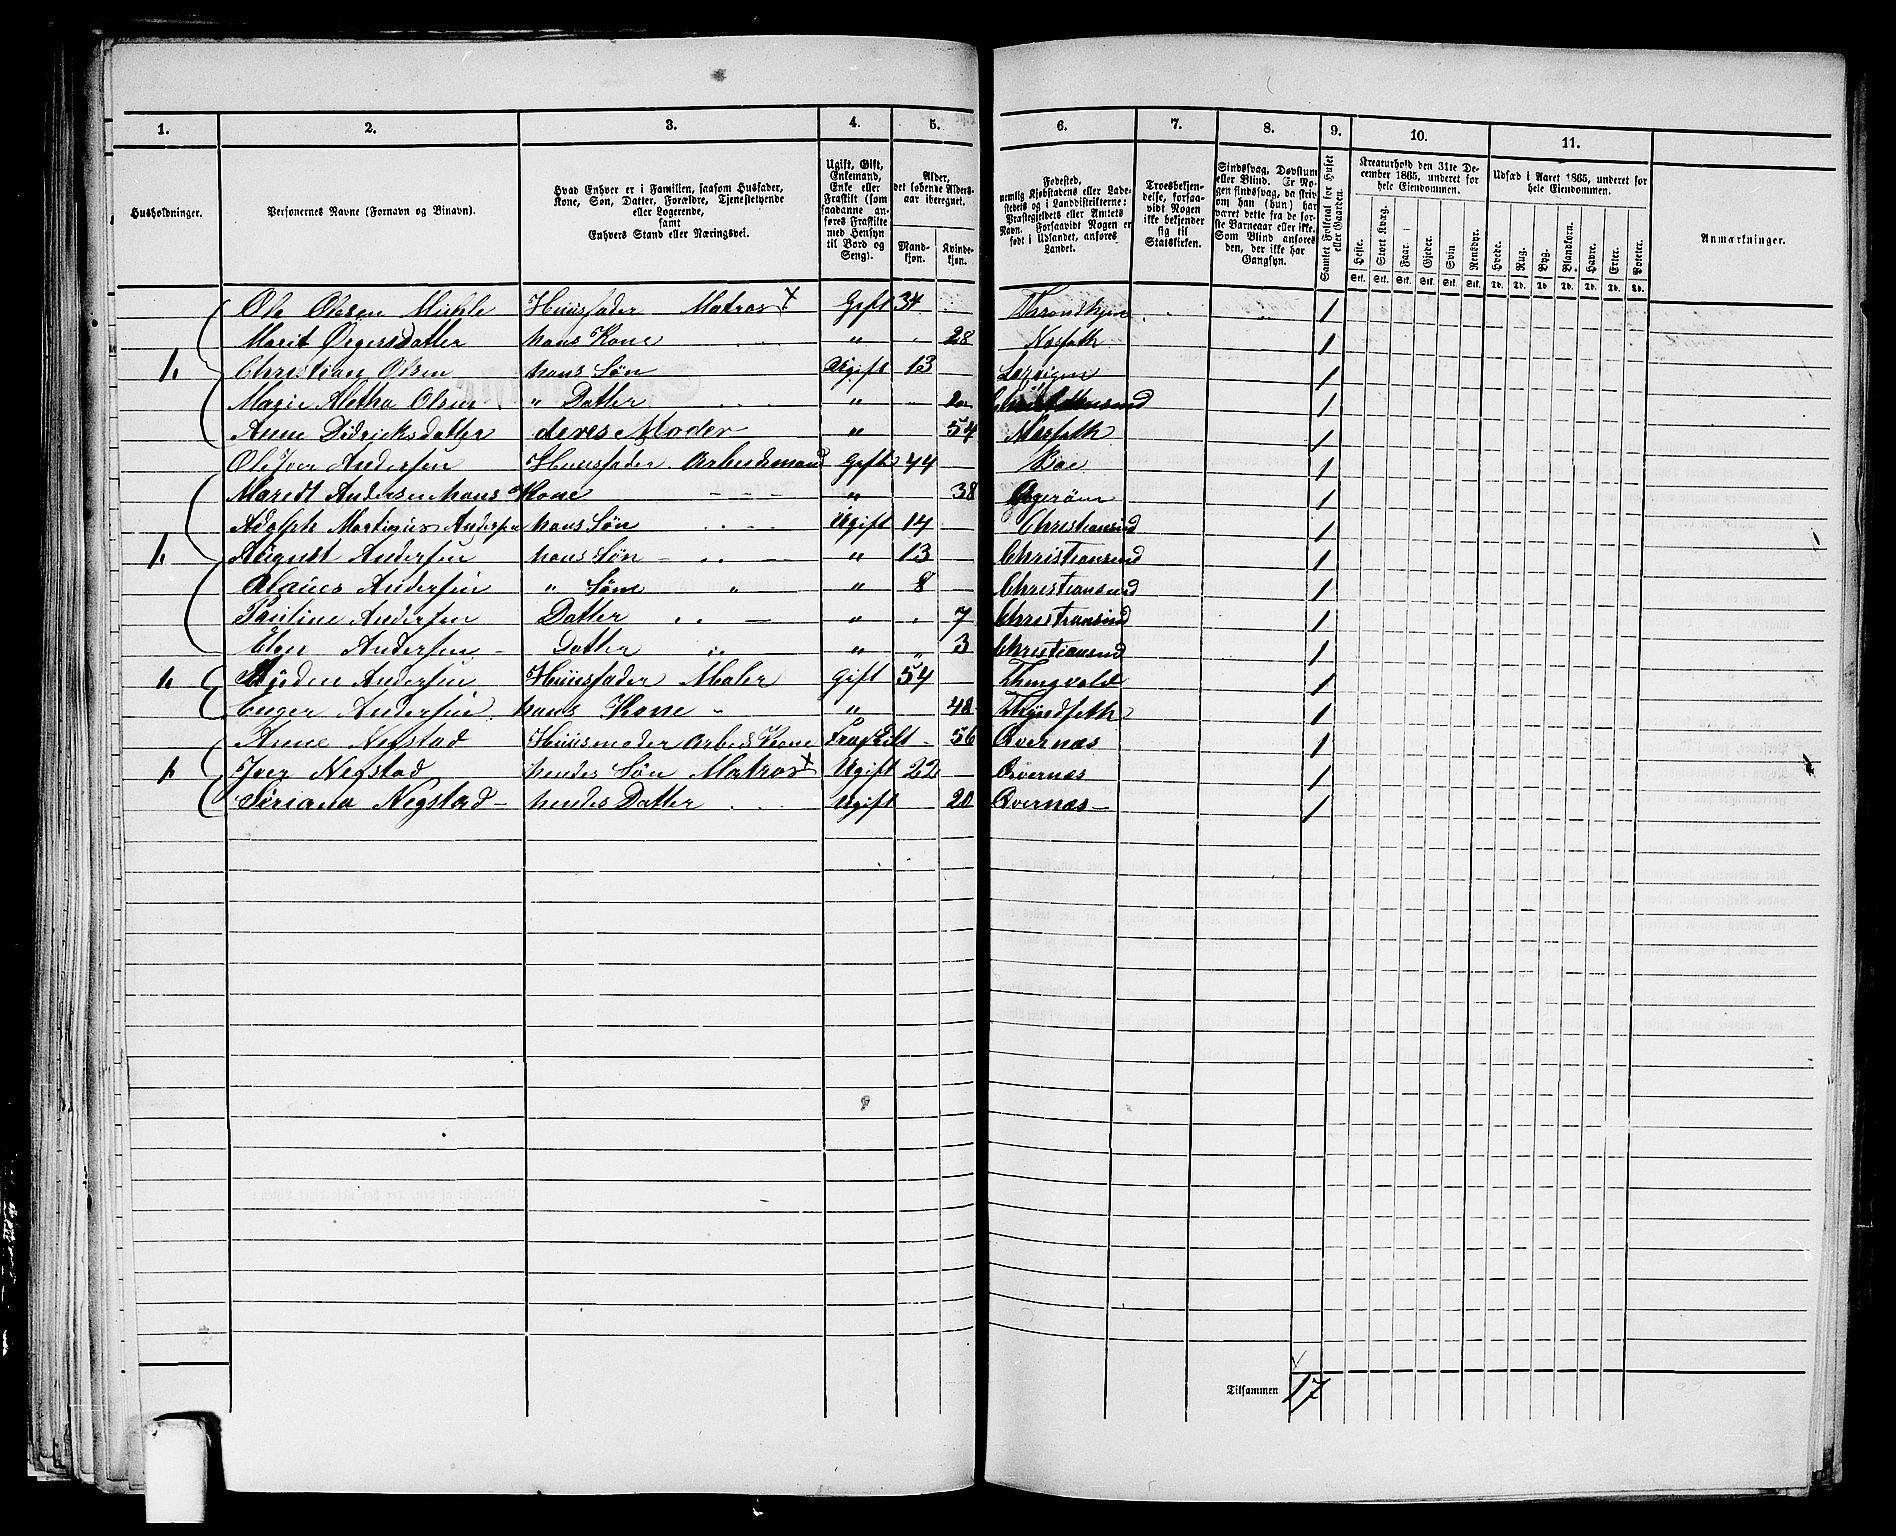 1. 2. 3. 4. 5. 6. 7. 8. 9. 10. 11.
Husholdninger.
Personernes Navne (Fornavn og Binavn).
Hvad Enhver er i Familien, saasom Husfader, Kone, Søn, Datter, Forældre, Tjenestetyende eller Logerende, samt Enhvers Stand eller Næringsvei.
Ugift, Gift, Enkemand, Enke eller Fraskilt (som saadanne anføres Fraskilte med Hensyn til Bord og Seng).
Alder, det løbende Aldersaar iberegnet.
Mandkjøn. Kvindekjøn.
Fødested, nemlig Kjøbstadens eller Ladestedets og i Landdistrikterne: Præstegjeldets eller Amtets Navn. Forsaavidt Nogen er født i Udlandet, anføres Landet.
Troesbekjendelse, forsaavidt Nogen ikke bekjender sig til Statskirken.
Sindssvag, Døvstum eller Blind. Er Nogen sindssvag, da skrives om han (hun) har været dette fra de første Barneaar eller ikke. Som Blind anføres den, der ikke har Gangsyn.
Samlet Folketal for Huset eller Gaarden.
Kreaturhold den 31te December 1865, underet for hele Eiendommen.
Heste. Stort Kvæg. Faar Gjeder. Svin Rensdyr.
Stk. Stk. Stk. Stk. Stk. Stk.
Udsæd i Aaret 1865, underet for hele Eiendommen.
Hvede. Rug. Byg. Blandkorn. Havre. Erter. Poteter.
Td. Td. Td. Td. Td. Td. Td.
Anmærkninger.
Ole Olsen Mickle Huusfader Matros x Gift 34 Throndhjem 1
Marit Ørgersdatter hans Kone " 28 Nosseth 1
1. Christian Olsen hans Søn Ugift 13 1
Marie Aletha Olsen " Datter " Christiansund 1
Anne Didricksdatter deres Moder " 54 Nosseth 1
Ole Iver Andersen Huusfader Arbeidsmand Gift 44 Boe 1
Maredt Andersen hans Kone " 38 1
Adolph Martinius Andersen hans Søn Ugift 14 Christiansund 1
1. August Andersen hans Søn " 13 Christiansund 1
Andersen " Søn " " 8 Christiansund 1
Pauline Andersen Datter " 7 Christiansund 1
Andersen Datter " " " 3 Christiansund 1
1. Andersen Huusfader Maler Gift 54 Thingvold 1
Andersen hans Kone " " 48 1
Anne Negstad Huusmoder Arbeids Kone Fraskilt 56 Qvernæs 1
1 Iver Negstad hendes Søn Matros x Ugift 22 Qvernæs 1
Siriana Negstad hendes Datter Ugift 20 Qvernæs 1
Tilsammen 17